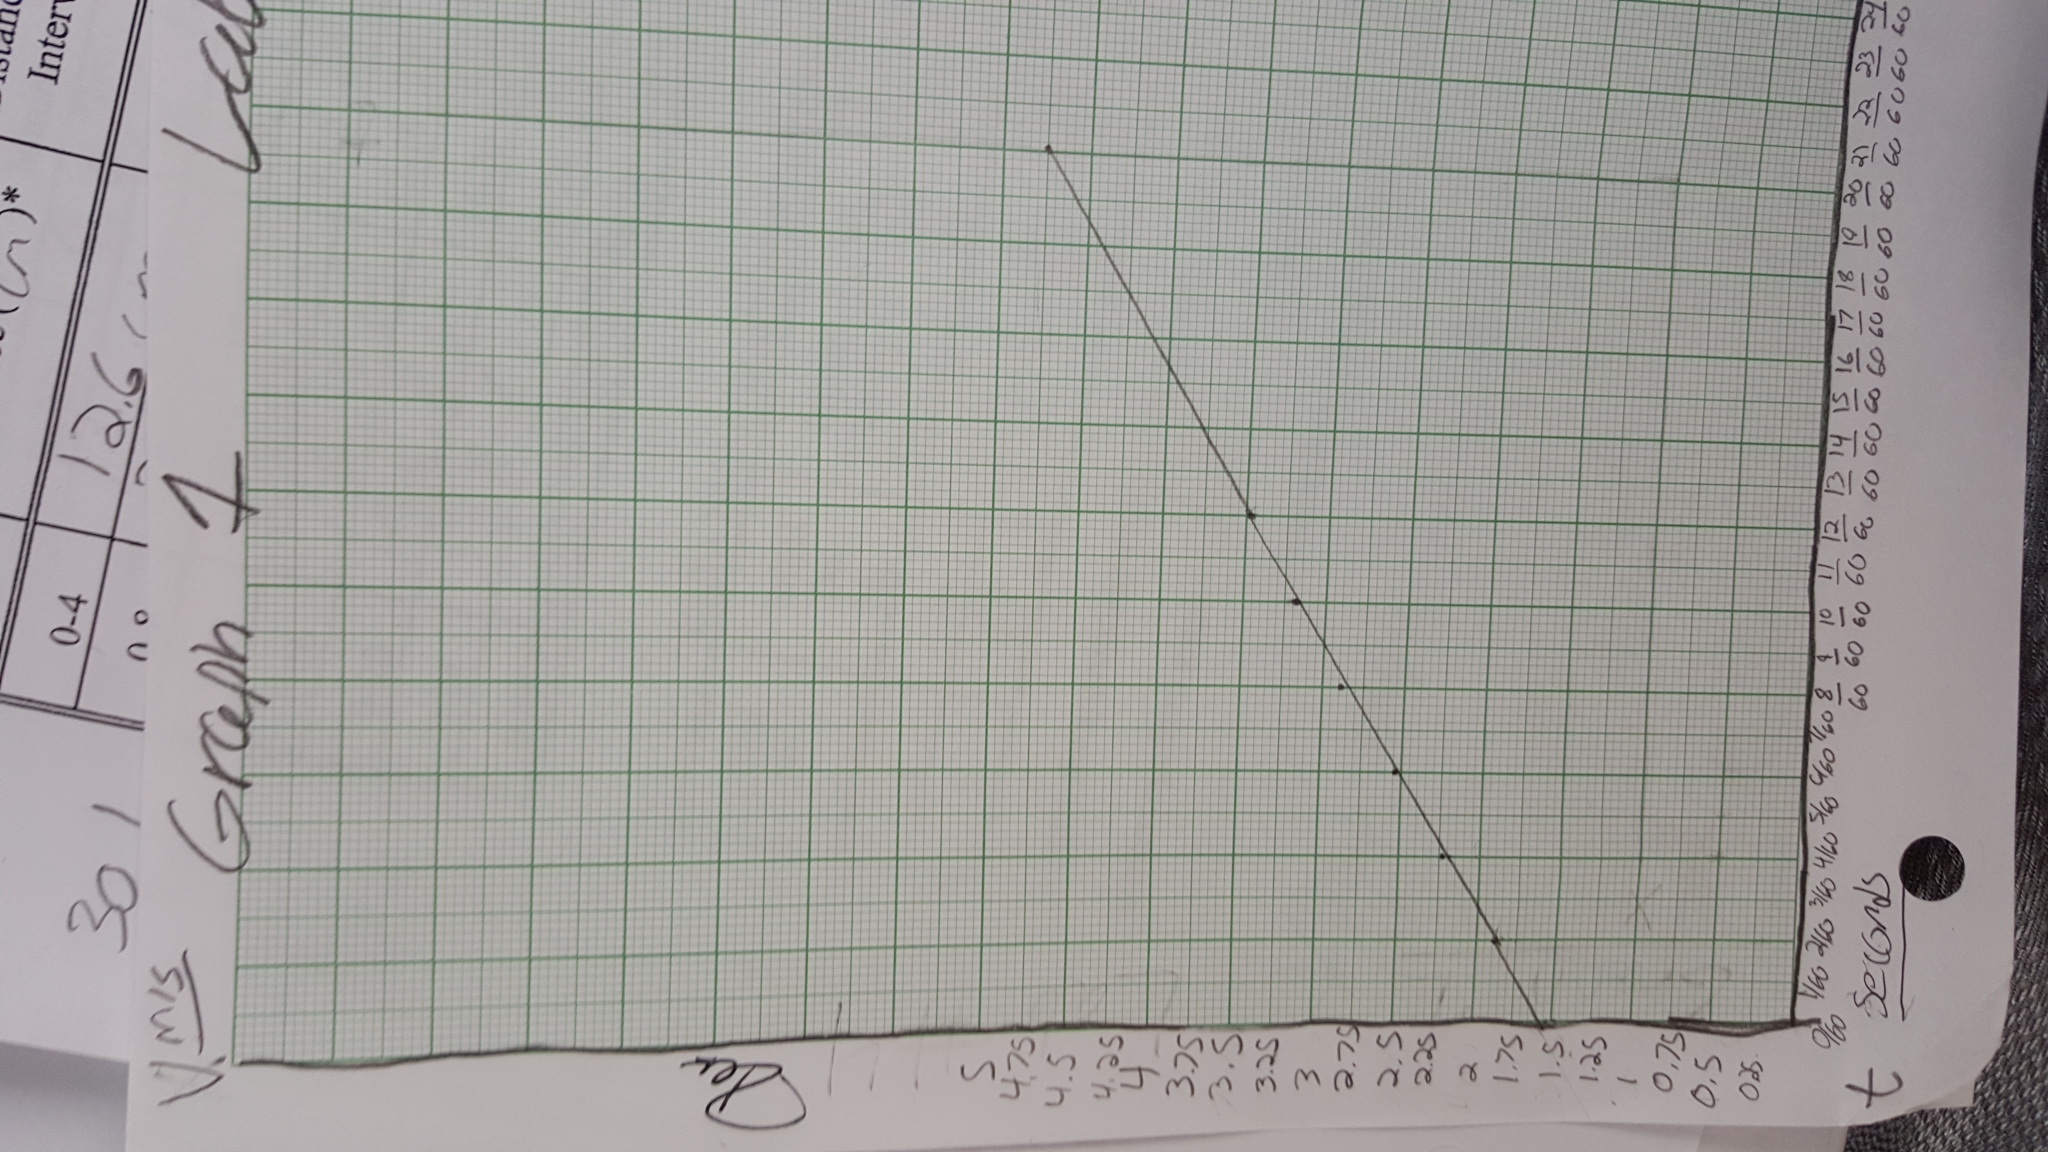 (m)*
Distanc
Interv
0-4
12.6 cm
301
V. m/s
Graph 1
Lab
5
4.75
4.5
4.25
4
3.75
3.5
3.25
3
2.75
2.5
2.25
2
1.75
1.5
1.25
1
0.75
0.5
025
0/60 1/60 2/60 3/60 4/60 5/60 6/60 7/60 8/60 9/60 10/60 11/60 12/60 13/60 14/60 15/60 16/60 17/60 18/60 19/60 20/60 21/60 22/60 23/60 24/60
t seconds